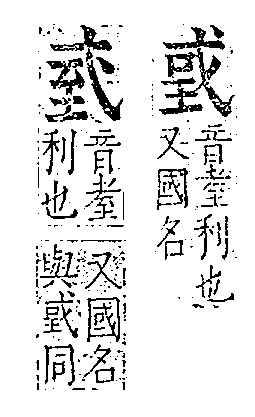 戜
音耋利也
又國名
音耋
利也
又國名
與戜同